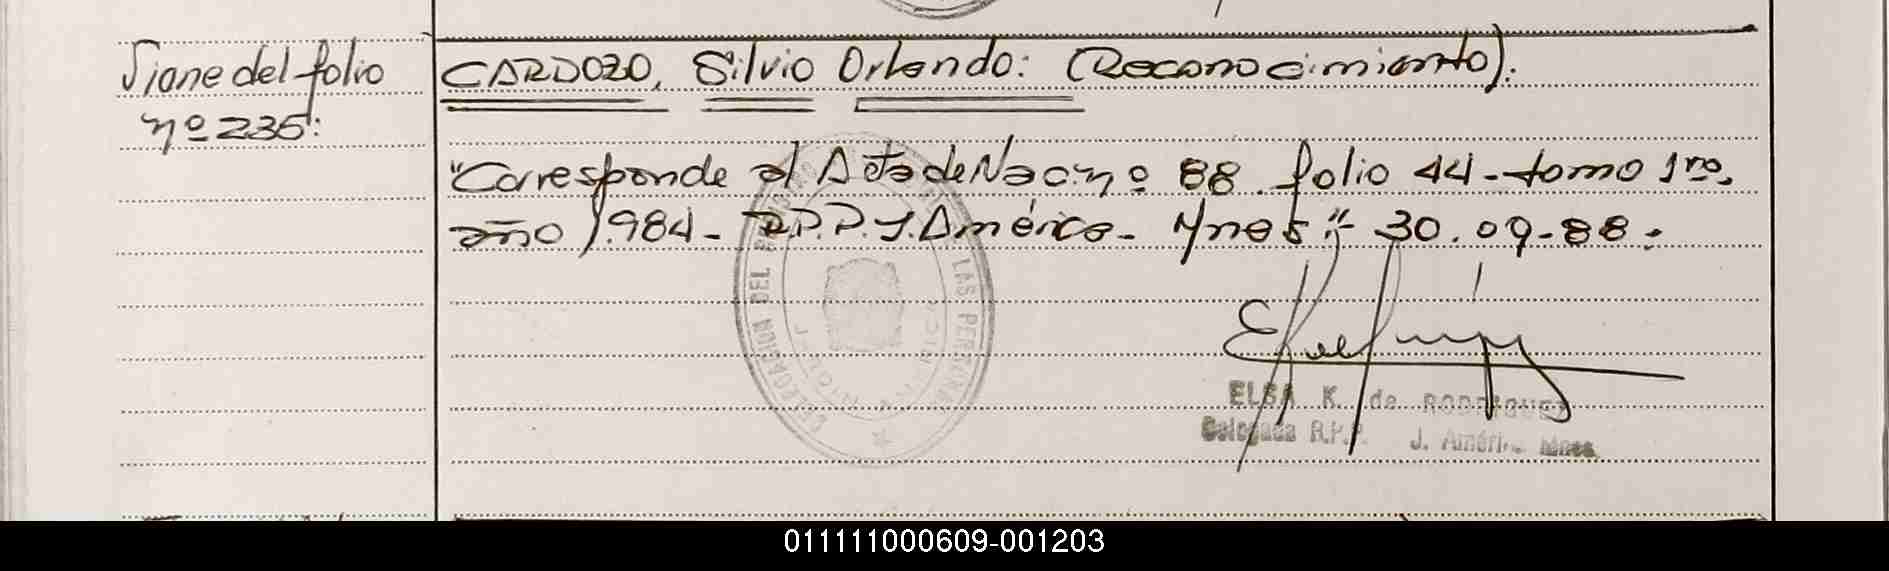 Viene del folio
nº 235:
CARDOZO, Silvio Orlando: (Reconocimiento).
"Corresponde al Acta de Nac. nº 88 folio 44 - tomo 1ro,
año 1.984 - R.P.P. J. América - Ynes" - 30.09-88.
DELEGACION DEL LAS PERSONAS
ELSA K. de RODRIGUEZ
Delegada R.P.P. J. Améric
011111000609-001203